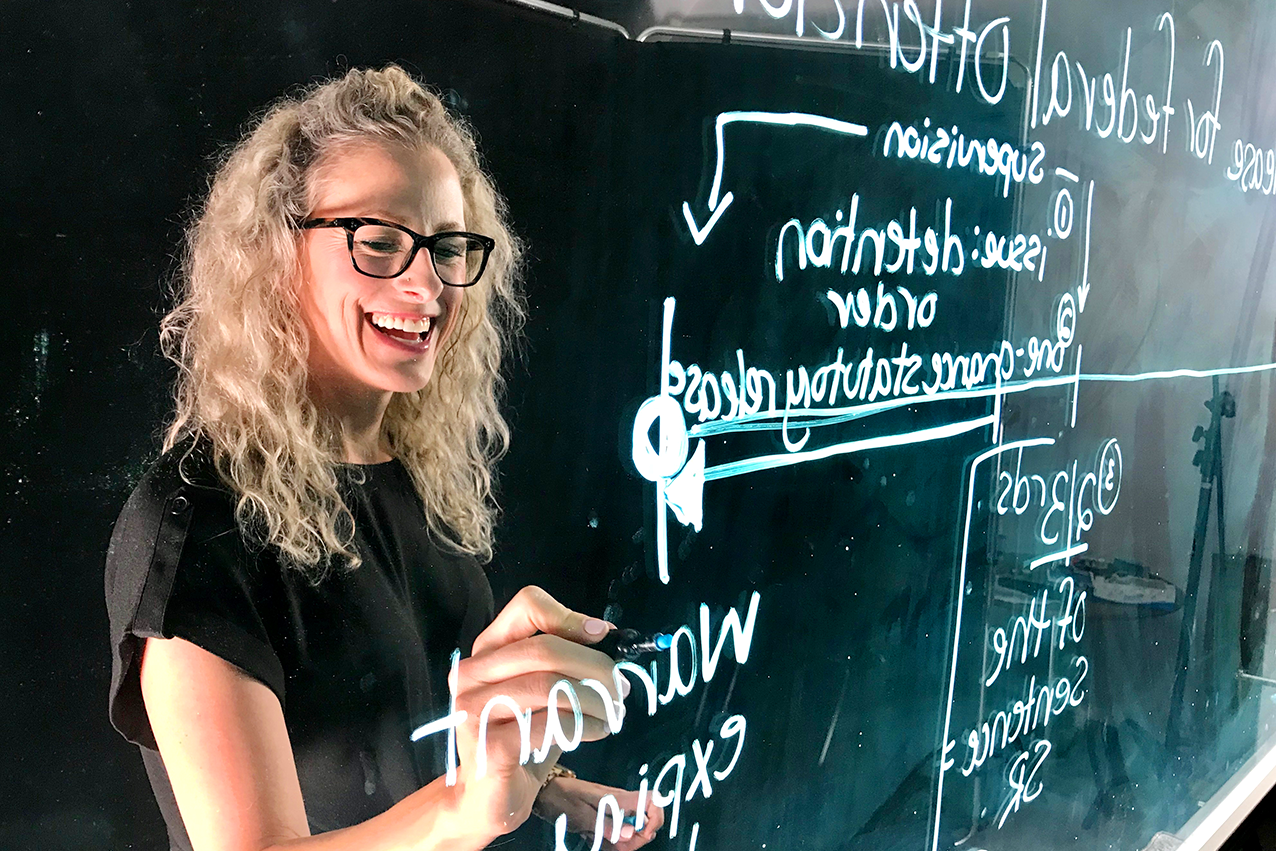 lease for federal offender
① supervision
issue: detention
order
② one-chance statutory release
③ 2/3rds
of the
sentence =
SR
Warrant
expiry